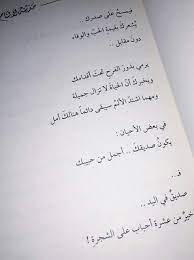 ويمسحُ على صدرك ..
يُشعرك بقيمةِ الحبّ والوفاء
دونَ مقابل ..
يرمي بذورَ الفرح تحتَ أقدامك
ويخبركَ أنّ الحياةَ لا تزالُ جميلة
ومهما اشتدّ الألمُ سيبقى دائماً هنالكَ أمل
في بعض الأحيان :
يكونُ صديقكَ .. أجمل من حبيبك
فـ ..
صديقٌ في اليد ..
خيرٌ من عشرة أحباب على الشجرة !